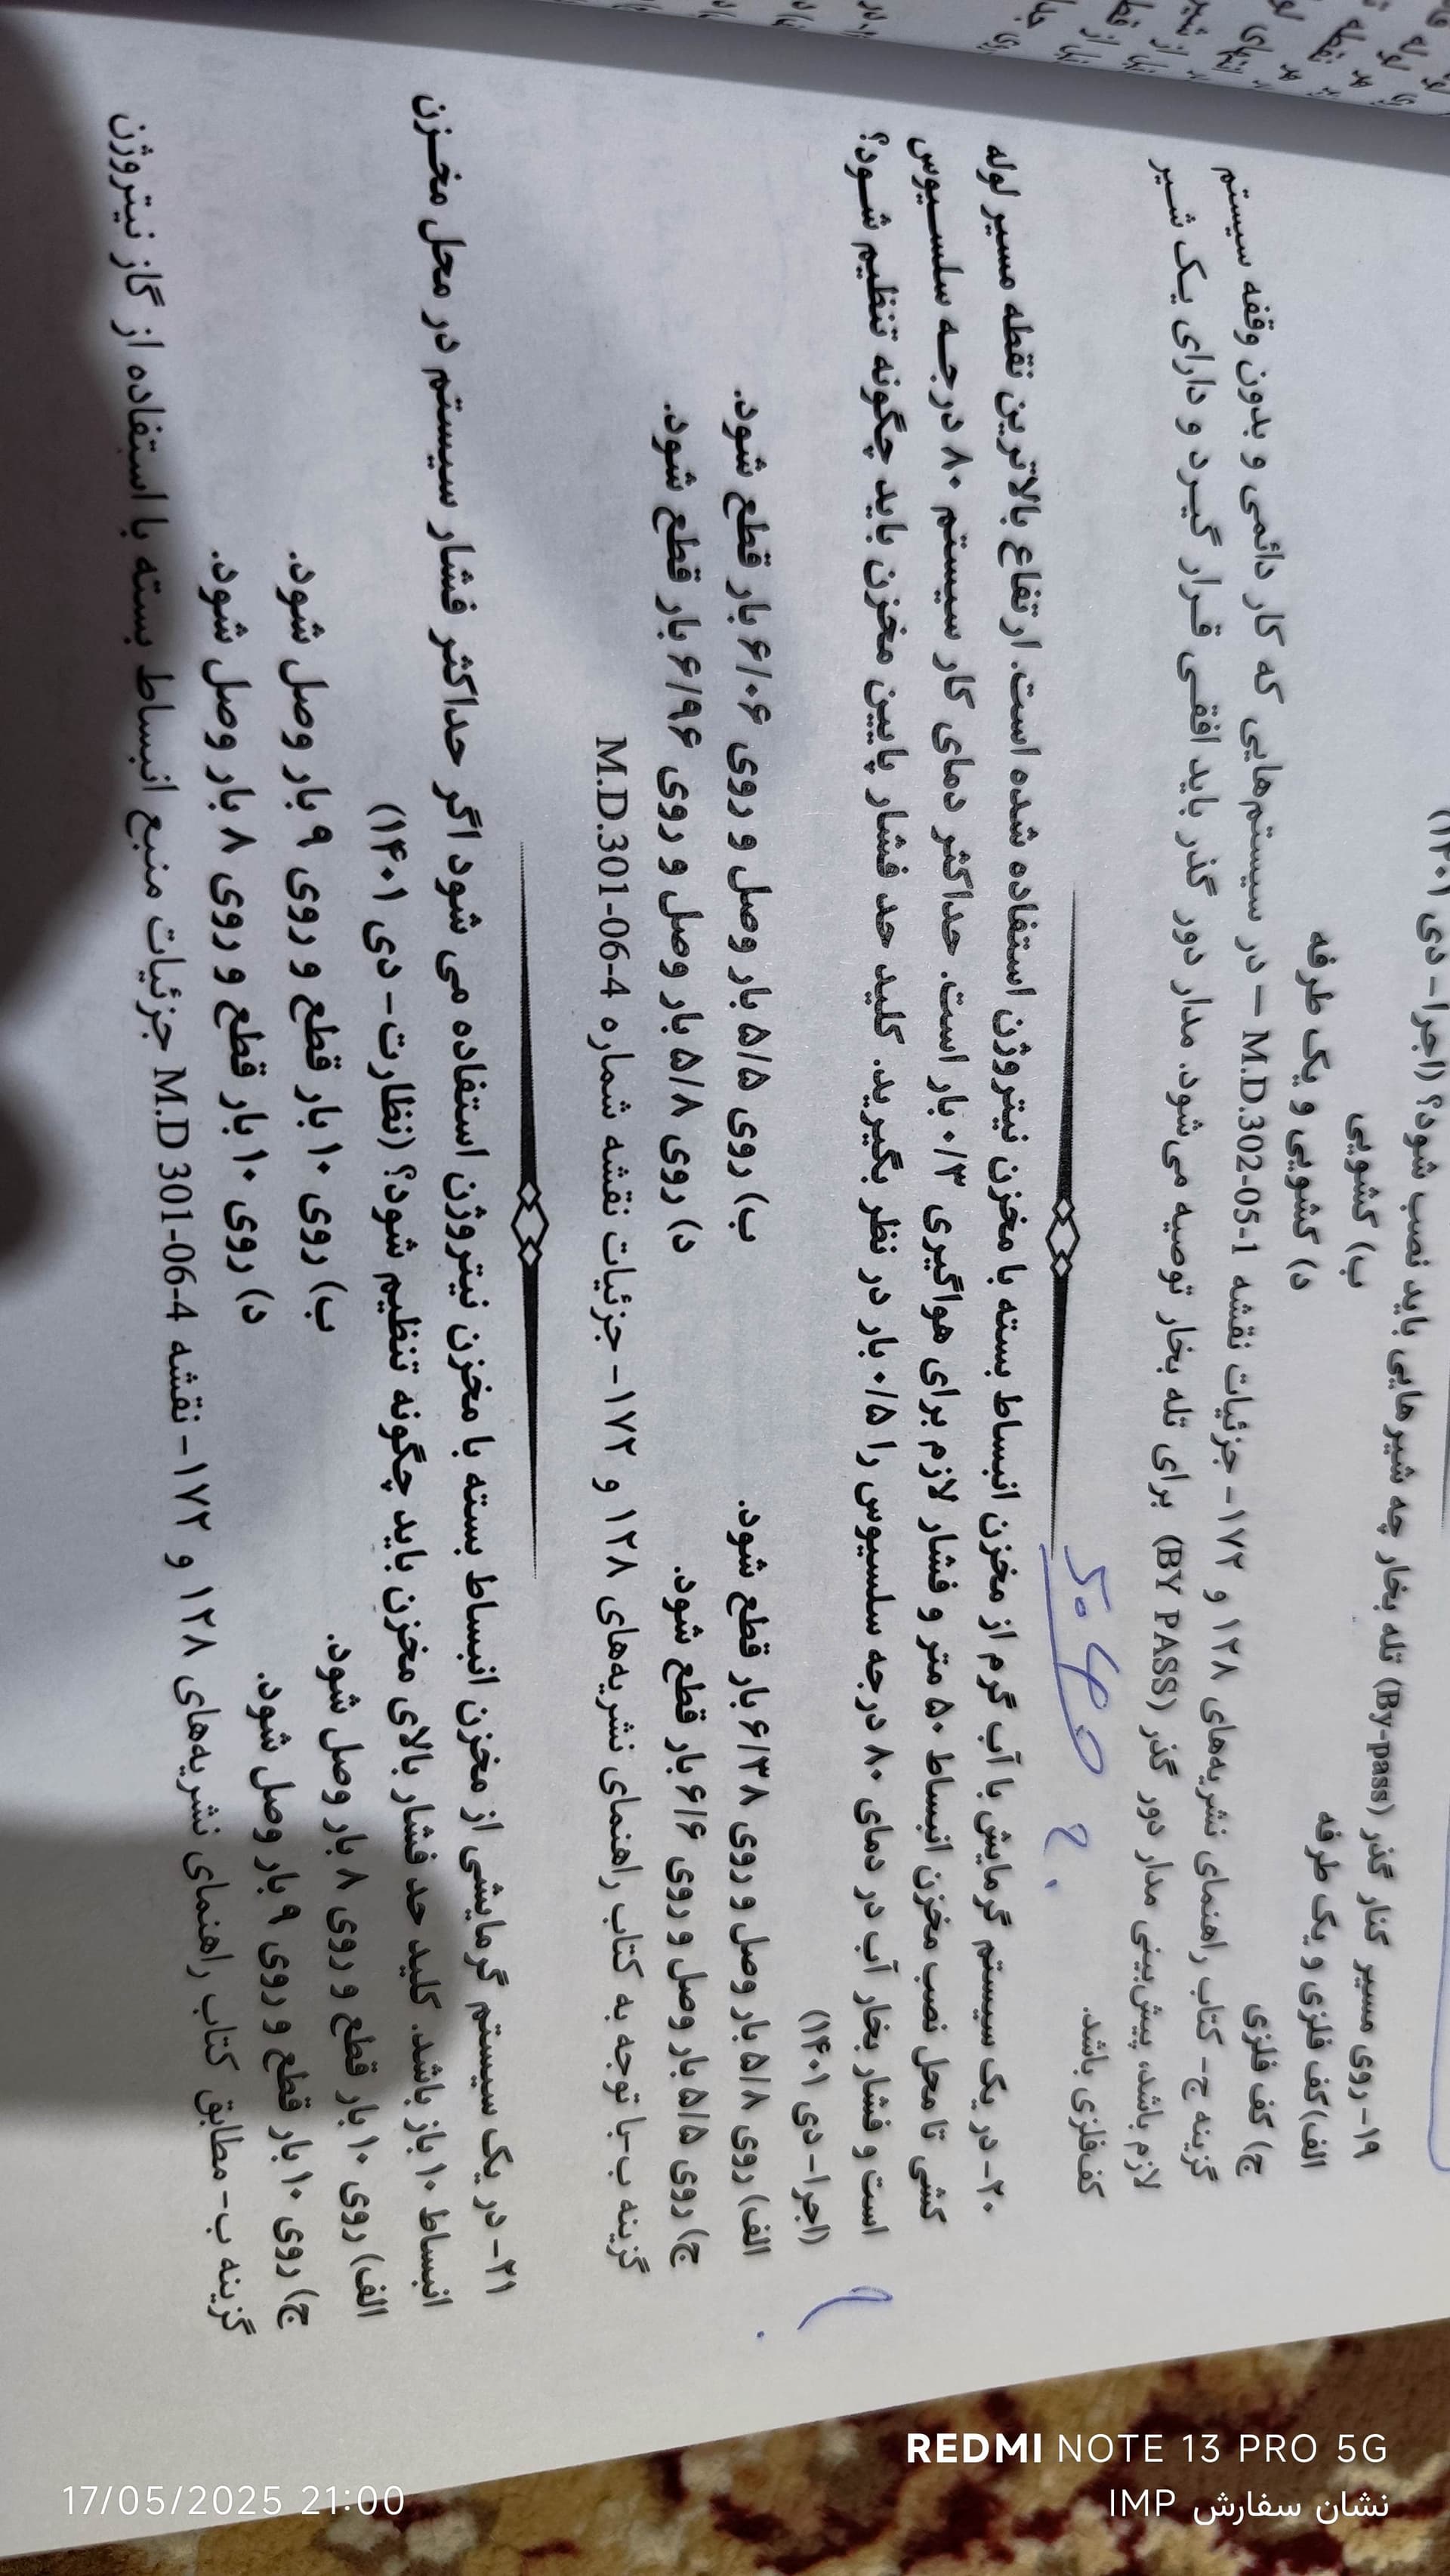 (۱۴۰۱
۱۹- روی مسیر کنار گذر (By-pass) تله بخار چه شیرهایی باید نصب شود؟ (اجرا- دی ۱۴۰۱)
الف) کف فلزی و یک طرفه
ب) کشویی
ج) کف فلزی
د) کشویی و یک طرفه
گزینه ج- کتاب راهنمای نشریه‌های ۱۲۸ و ۱۷۲- جزئیات نقشه M.D.302-05-1 – در سیستم‌هایی که کار دائمی و بدون وقفه سیستم
لازم باشد، پیش‌بینی مدار دور گذر (BY PASS) برای تله بخار توصیه می‌شود. مدار دور گذر باید افقی قرار گیرد و دارای یک شیر
کف‌فلزی باشد.
۲۰- در یک سیستم گرمایش با آب گرم از مخزن انبساط بسته با مخزن نیتروژن استفاده شده است. ارتفاع بالاترین نقطه مسیر لوله
کشی تا محل نصب مخزن انبساط ۵۰ متر و فشار لازم برای هواگیری ۰/۳ بار است. حداکثر دمای کار سیستم ۸۰ درجه سلسیوس
است و فشار بخار آب در دمای ۸۰ درجه سلسیوس را ۰/۵ بار در نظر بگیرید. کلید حد فشار پایین مخزن باید چگونه تنظیم شود؟
(اجرا- دی ۱۴۰۱)
الف) روی ۵/۸ بار وصل و روی ۶/۳۸ بار قطع شود.
ب) روی ۵/۵ بار وصل و روی ۶/۰۶ بار قطع شود.
ج) روی ۵/۵ بار وصل و روی ۶/۶ بار قطع شود.
د) روی ۵/۸ بار وصل و روی ۶/۹۶ بار قطع شود.
گزینه ب-با توجه به کتاب راهنمای نشریه‌های ۱۲۸ و ۱۷۲- جزئیات نقشه شماره M.D.301-06-4
۲۱- در یک سیستم گرمایشی از مخزن انبساط بسته با مخزن نیتروژن استفاده می شود اگر حداکثر فشار سیستم در محل مخزن
انبساط ۱۰ باز باشد. کلید حد فشار بالای مخزن باید چگونه تنظیم شود؟ (نظارت- دی ۱۴۰۱)
الف) روی ۱۰ بار قطع و روی ۸ بار وصل شود.
ب) روی ۱۰ بار قطع و روی ۹ بار وصل شود.
ج) روی ۱۰ بار قطع و روی ۹ بار وصل شود.
د) روی ۱۰ بار قطع و روی ۸ بار وصل شود.
گزینه ب- مطابق کتاب راهنمای نشریه‌های ۱۲۸ و ۱۷۲ - نقشه M.D 301-06-4 جزئیات منبع انبساط بسته با استفاده از گاز نیتروژن
REDMI NOTE 13 PRO 5G
نشان سفارش IMP
17/05/2025 21:00